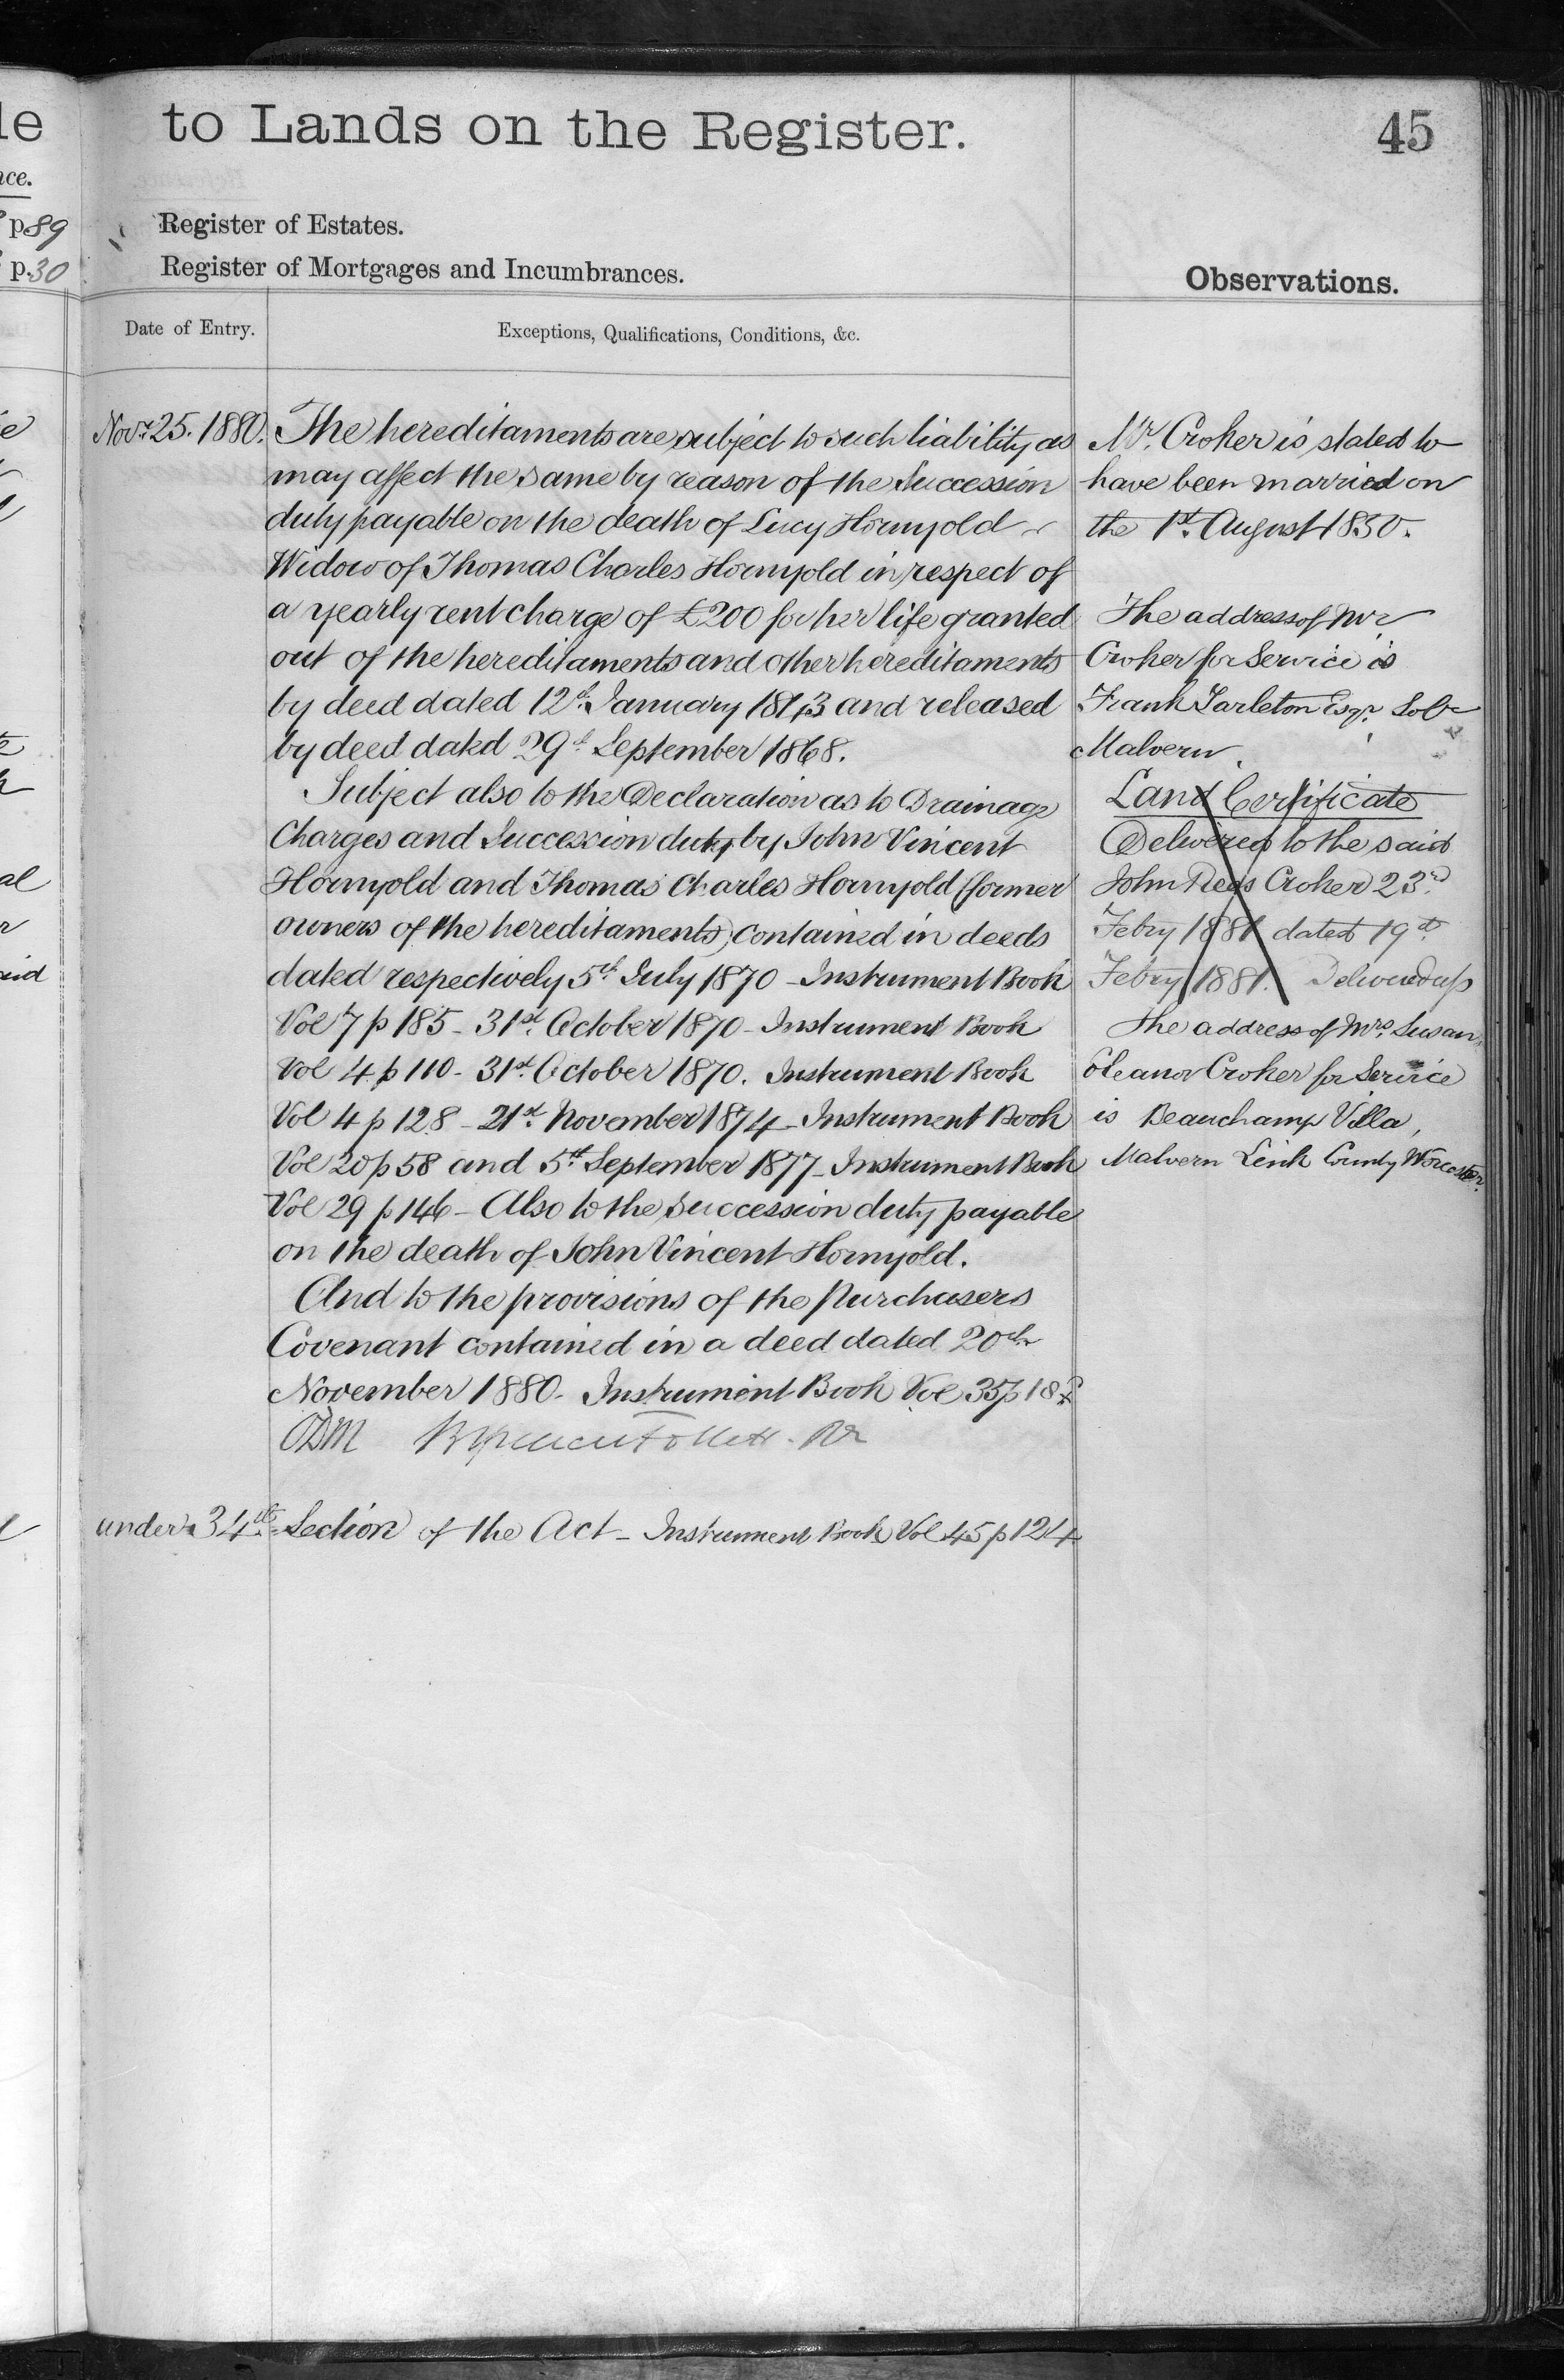 le to Lands on the Register. 45
nce.
p.89 Register of Estates.
p.30 Register of Mortgages and Incumbrances.
Observations.
Date of Entry. Exceptions, Qualifications, Conditions, &c.
Novr. 25. 1880. The hereditaments are subject to such liability as
may affect the same by reason of the Succession
duty payable on the death of Lucy Hornyold
Widow of Thomas Charles Hornyold in respect of
a yearly rent charge of £200 for her life granted
out of the hereditaments and other hereditaments
by deed dated 12th January 1843 and released
by deed dated 29th September 1868.
Subject also to the Declaration as to Drainage
Charges and Succession duty by John Vincent
Hornyold and Thomas Charles Hornyold (former
owners of the hereditaments) contained in deeds
dated respectively 5th July 1870 - Instrument Book
Vol 7 p 185 - 31st October 1870 - Instrument Book
Vol 4 p 110 - 31st October 1870. Instrument Book
Vol 4 p 128 - 21st November 1874 - Instrument Book
Vol 20 p 58 and 5th September 1877 - Instrument Book
Vol 29 p 146 - Also to the Succession duty payable
on the death of John Vincent Hornyold.
And to the provisions of the Purchasers
Covenant contained in a deed dated 20th
November 1880 - Instrument Book Vol 35 p
under 34th Section of the Act - Instrument Book Vol 45 p 124
Mr. Croker is stated to
have been married on
the 1st August 1850.
The address of Mr
Croker for Service is
Frank Tarleton Esqr. Solr
Malvern.
Land Certificate
Delivered to the said
John Croker 23rd
Febry 1881 dated 19th
Febry 1881. Delivered up
The address of Mrs. Susan
Eleanor Croker for Service
is Beauchamp Villa,
Malvern Link County Worcester.